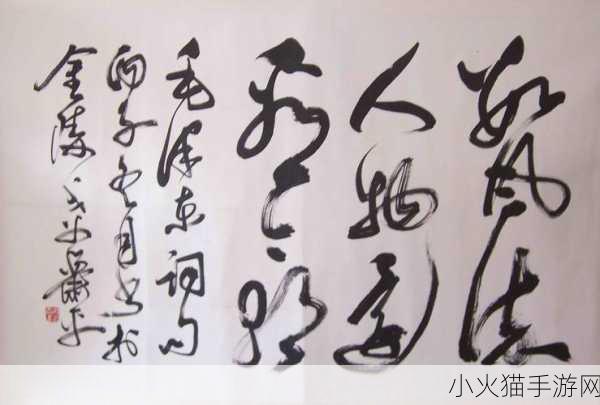 数风流
人物还
看今朝
毛泽东词句
丙子冬月书于
金陵萧平
小火猫手游网